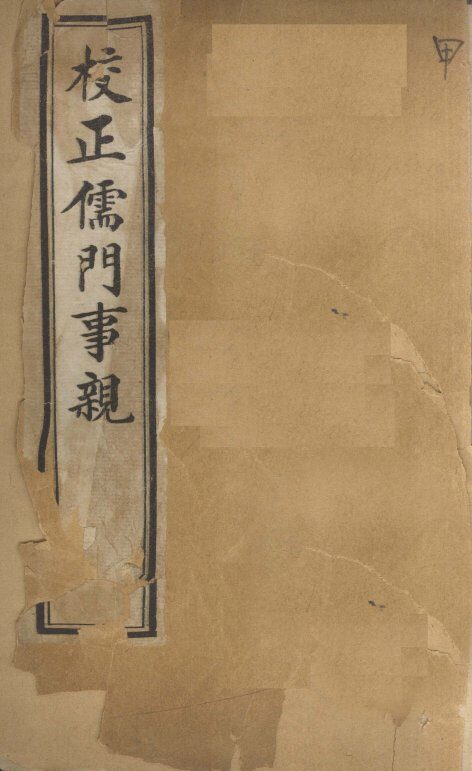 甲
校正儒門事親